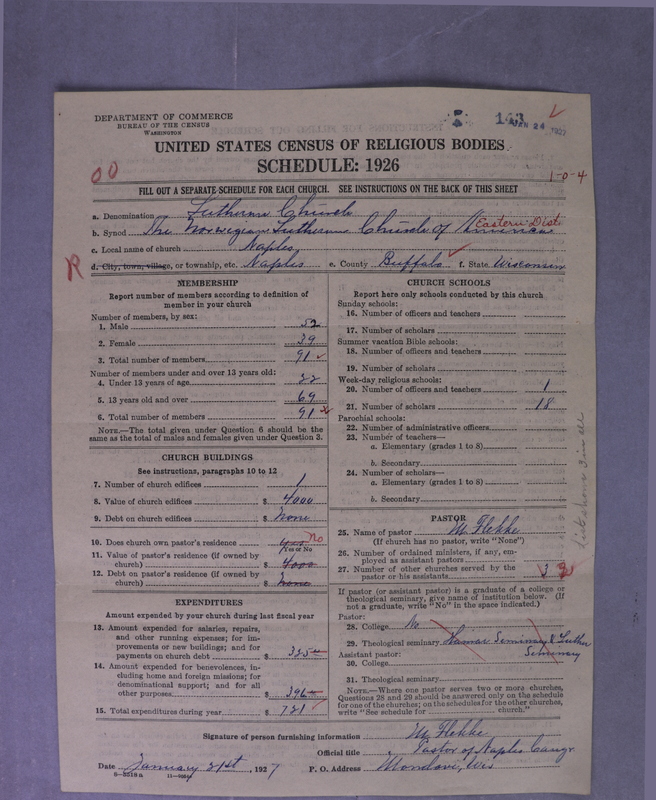 DEPARTMENT OF COMMERCE
BUREAU OF THE CENSUS
WASHINGTON
143 JAN 24 1927
UNITED STATES CENSUS OF RELIGIOUS BODIES
SCHEDULE: 1926
00
1-0-4
FILL OUT A SEPARATE SCHEDULE FOR EACH CHURCH. SEE INSTRUCTIONS ON THE BACK OF THIS SHEET
a. Denomination Lutheran Church
b. Synod The Norwegian Lutheran Church of America Eastern Dist.
c. Local name of church Naples
R d. City, town, village, or township, etc. Naples e. County Buffalo f. State Wisconsin
MEMBERSHIP
Report number of members according to definition of
member in your church
Number of members, by sex:
1. Male 52
2. Female 39
3. Total number of members 91
Number of members under and over 13 years old:
4. Under 13 years of age 22
5. 13 years old and over 69
6. Total number of members 91
NOTE.—The total given under Question 6 should be the
same as the total of males and females given under Question 3.
CHURCH BUILDINGS
See instructions, paragraphs 10 to 12
7. Number of church edifices 1
8. Value of church edifices $ 4000
9. Debt on church edifices $ None
10. Does church own pastor's residence No
Yes or No
11. Value of pastor's residence (if owned by
church) $ 4000
12. Debt on pastor's residence (if owned by
church) $ None
EXPENDITURES
Amount expended by your church during last fiscal year
13. Amount expended for salaries, repairs,
and other running expenses; for im-
provements or new buildings; and for
payments on church debt $ 325
14. Amount expended for benevolences, in-
cluding home and foreign missions; for
denominational support; and for all
other purposes $ 396
15. Total expenditures during year $ 721
CHURCH SCHOOLS
Report here only schools conducted by this church
Sunday schools:
16. Number of officers and teachers
17. Number of scholars
Summer vacation Bible schools:
18. Number of officers and teachers
19. Number of scholars
Week-day religious schools:
20. Number of officers and teachers 1
21. Number of scholars 18
Parochial schools:
22. Number of administrative officers
23. Number of teachers—
a. Elementary (grades 1 to 8)
b. Secondary
24. Number of scholars—
a. Elementary (grades 1 to 8)
b. Secondary
PASTOR
25. Name of pastor M. Flekke
(If church has no pastor, write "None")
26. Number of ordained ministers, if any, em-
ployed as assistant pastors
27. Number of other churches served by the
pastor or his assistants 3
If pastor (or assistant pastor) is a graduate of a college or
theological seminary, give name of institution below. (If
not a graduate, write "No" in the space indicated.)
Pastor:
28. College No
29. Theological seminary Hamar Seminary & Luther
Seminary
Assistant pastor:
30. College
31. Theological seminary
NOTE.—Where one pastor serves two or more churches,
Questions 28 and 29 should be answered only on the schedule
for one of the churches; on the schedules for the other churches,
write "See schedule for church."
Signature of person furnishing information M. Flekke
Official title Pastor of Naples Congr
Date January 21st, 1927 P. O. Address Mondovi, Wis
8-3518a